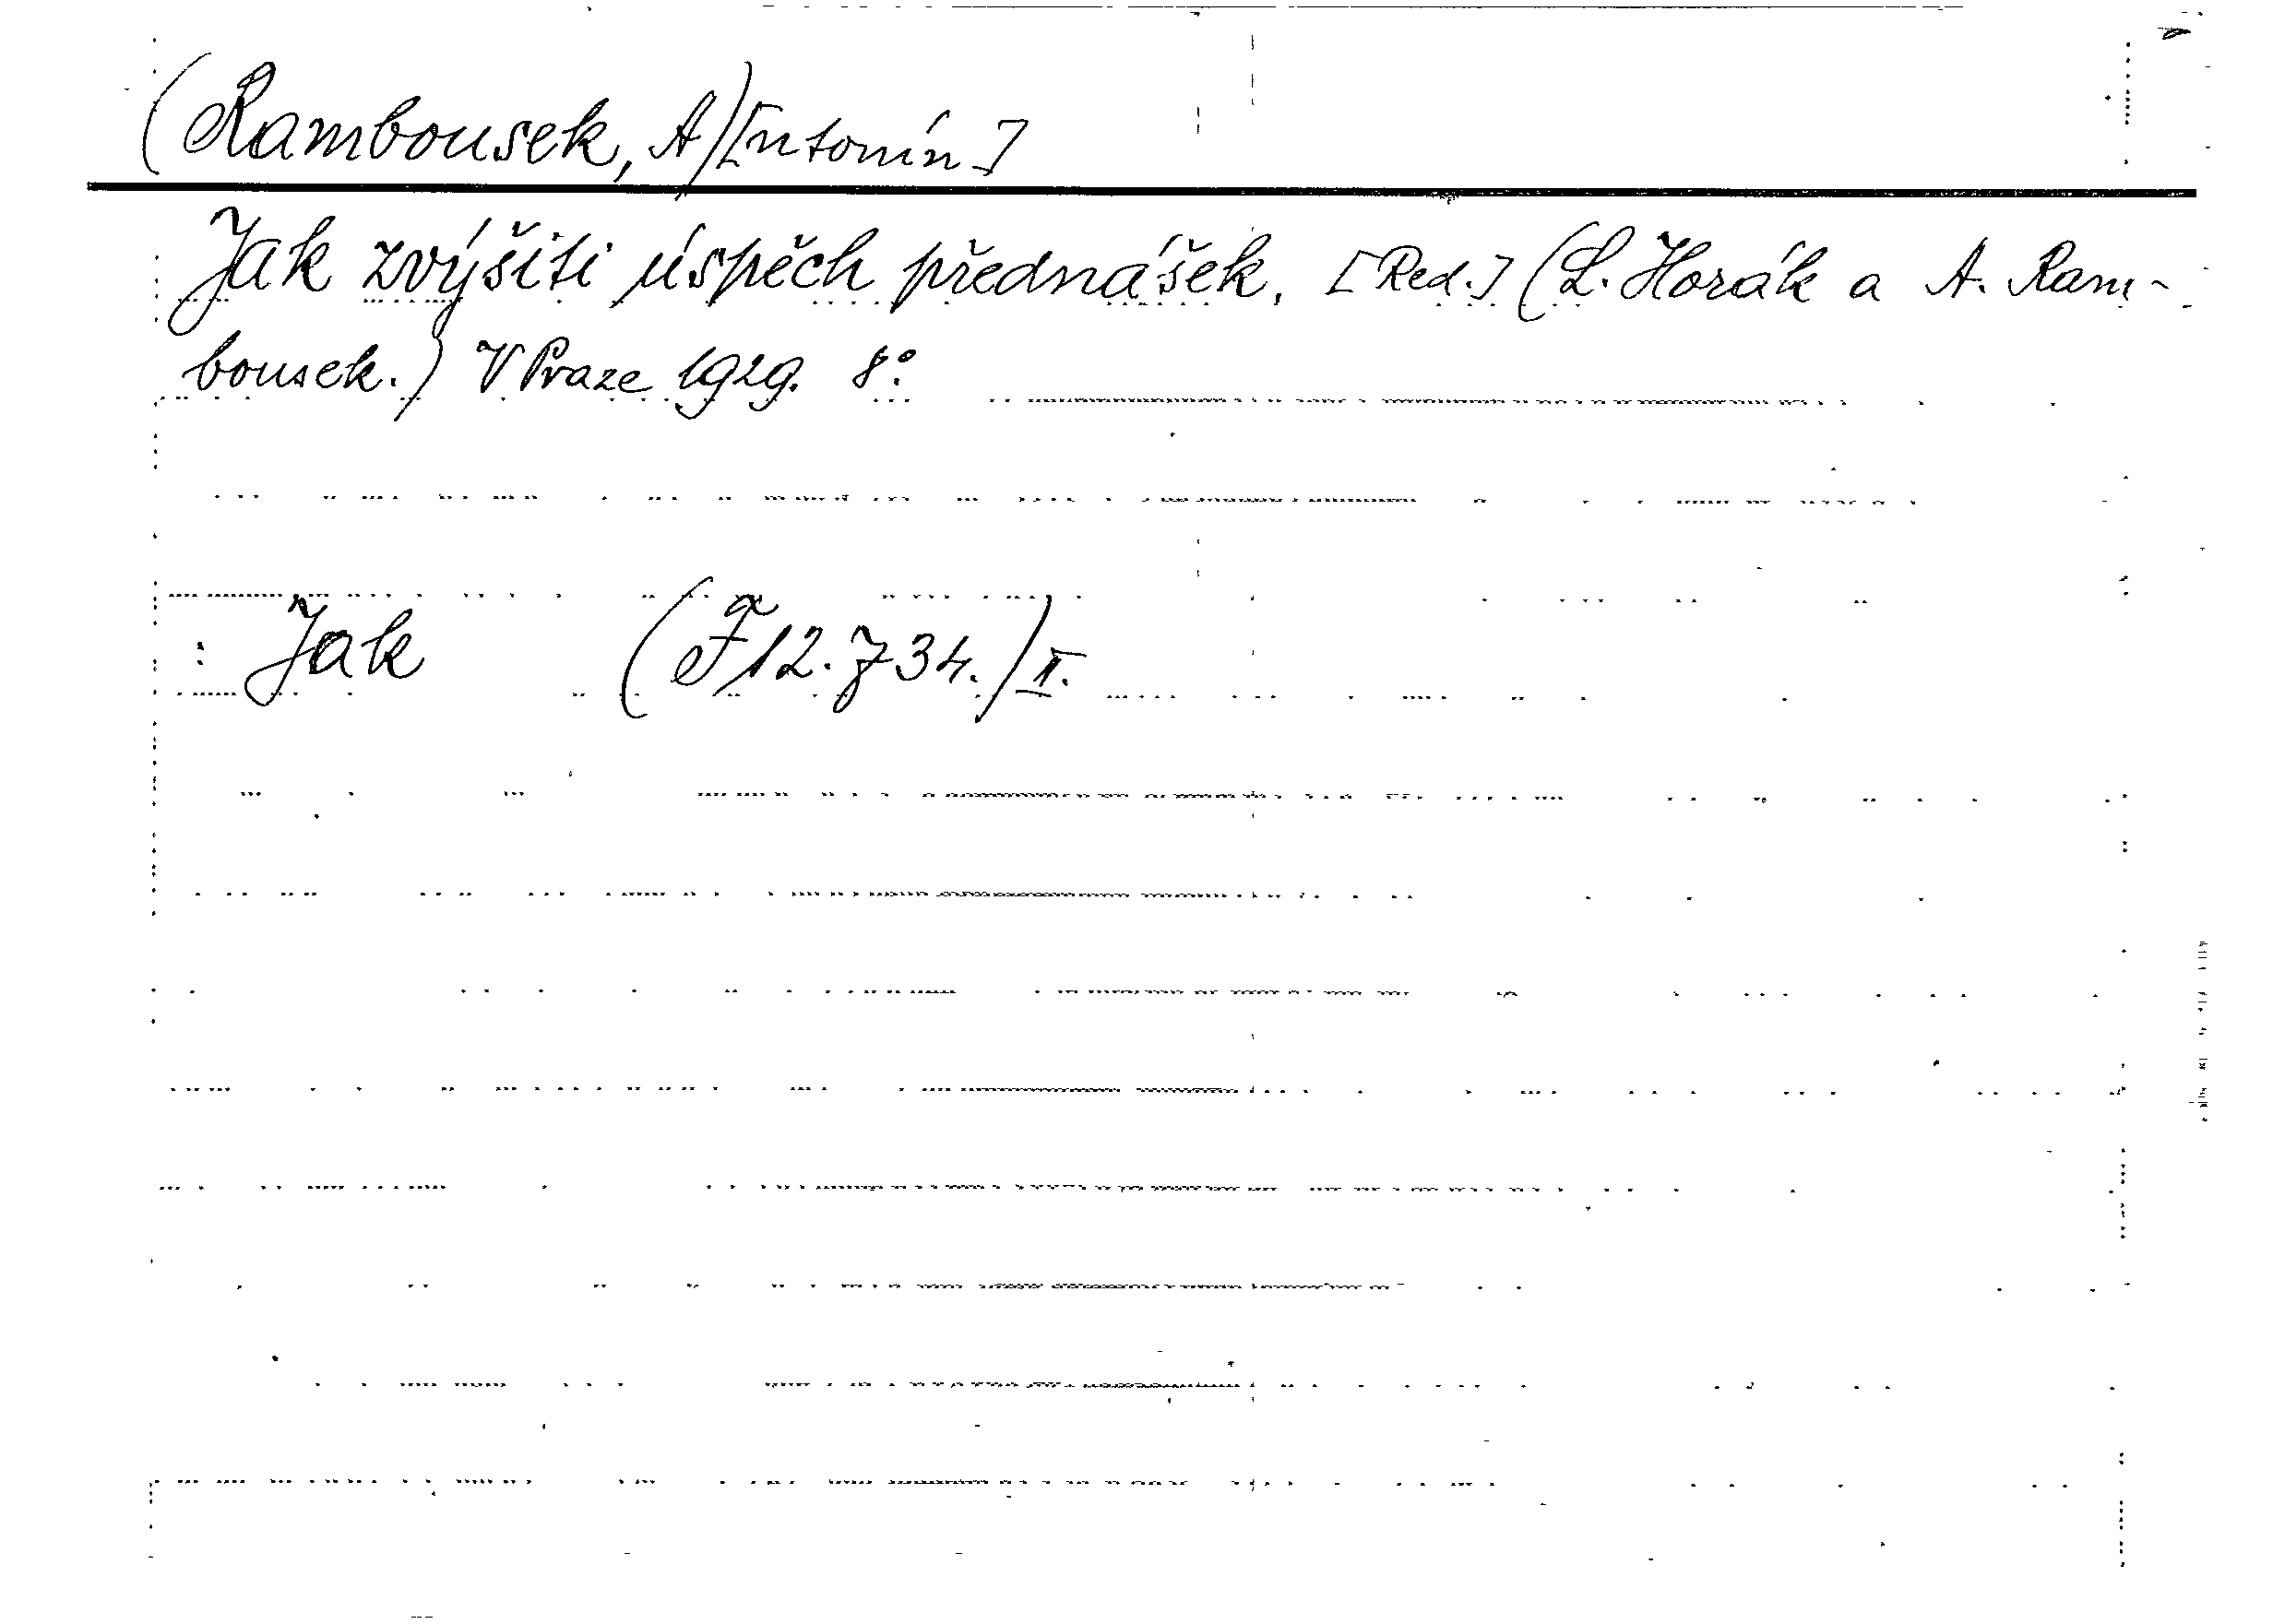 (Rambousek, A)[ntonín]
Jak zvýšiti úspěch přednášek. [Red.] (L. Horák a A. Ram-
bousek.) V Praze 1929. 8°.
: Jak (F 12.734.) II.